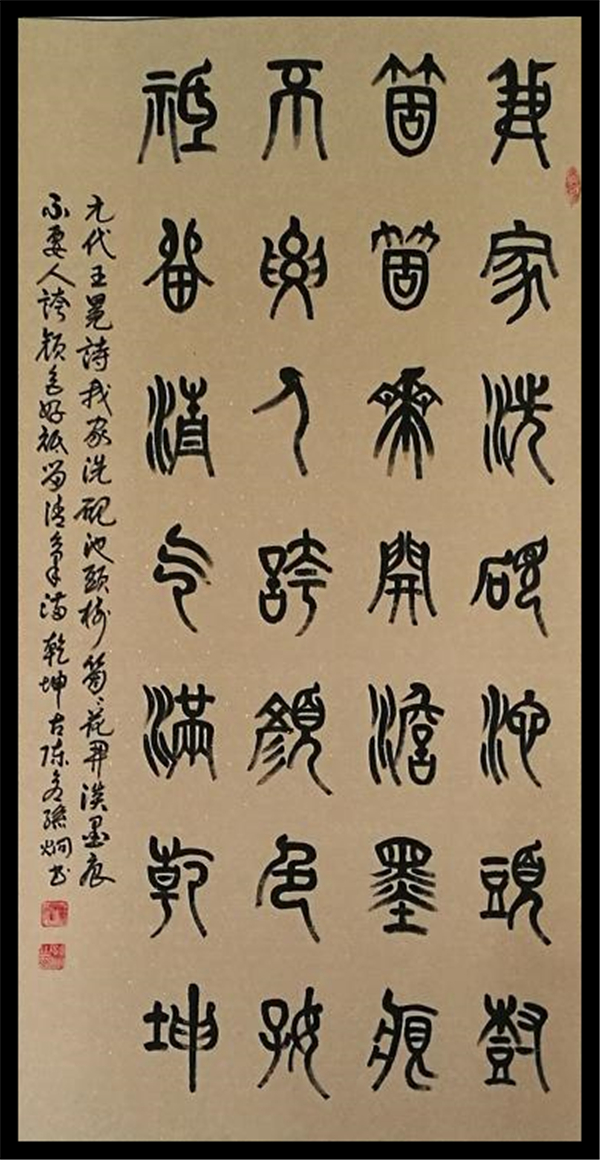 我家洗硯池頭樹
箇箇華開澹墨痕
不要人誇顏色好
祇留清气滿乾坤
元代王冕詩我家洗硯池頭樹箇〻花開淡墨痕
不要人誇顏色好祇留清氣滿乾坤古陈孫炯书